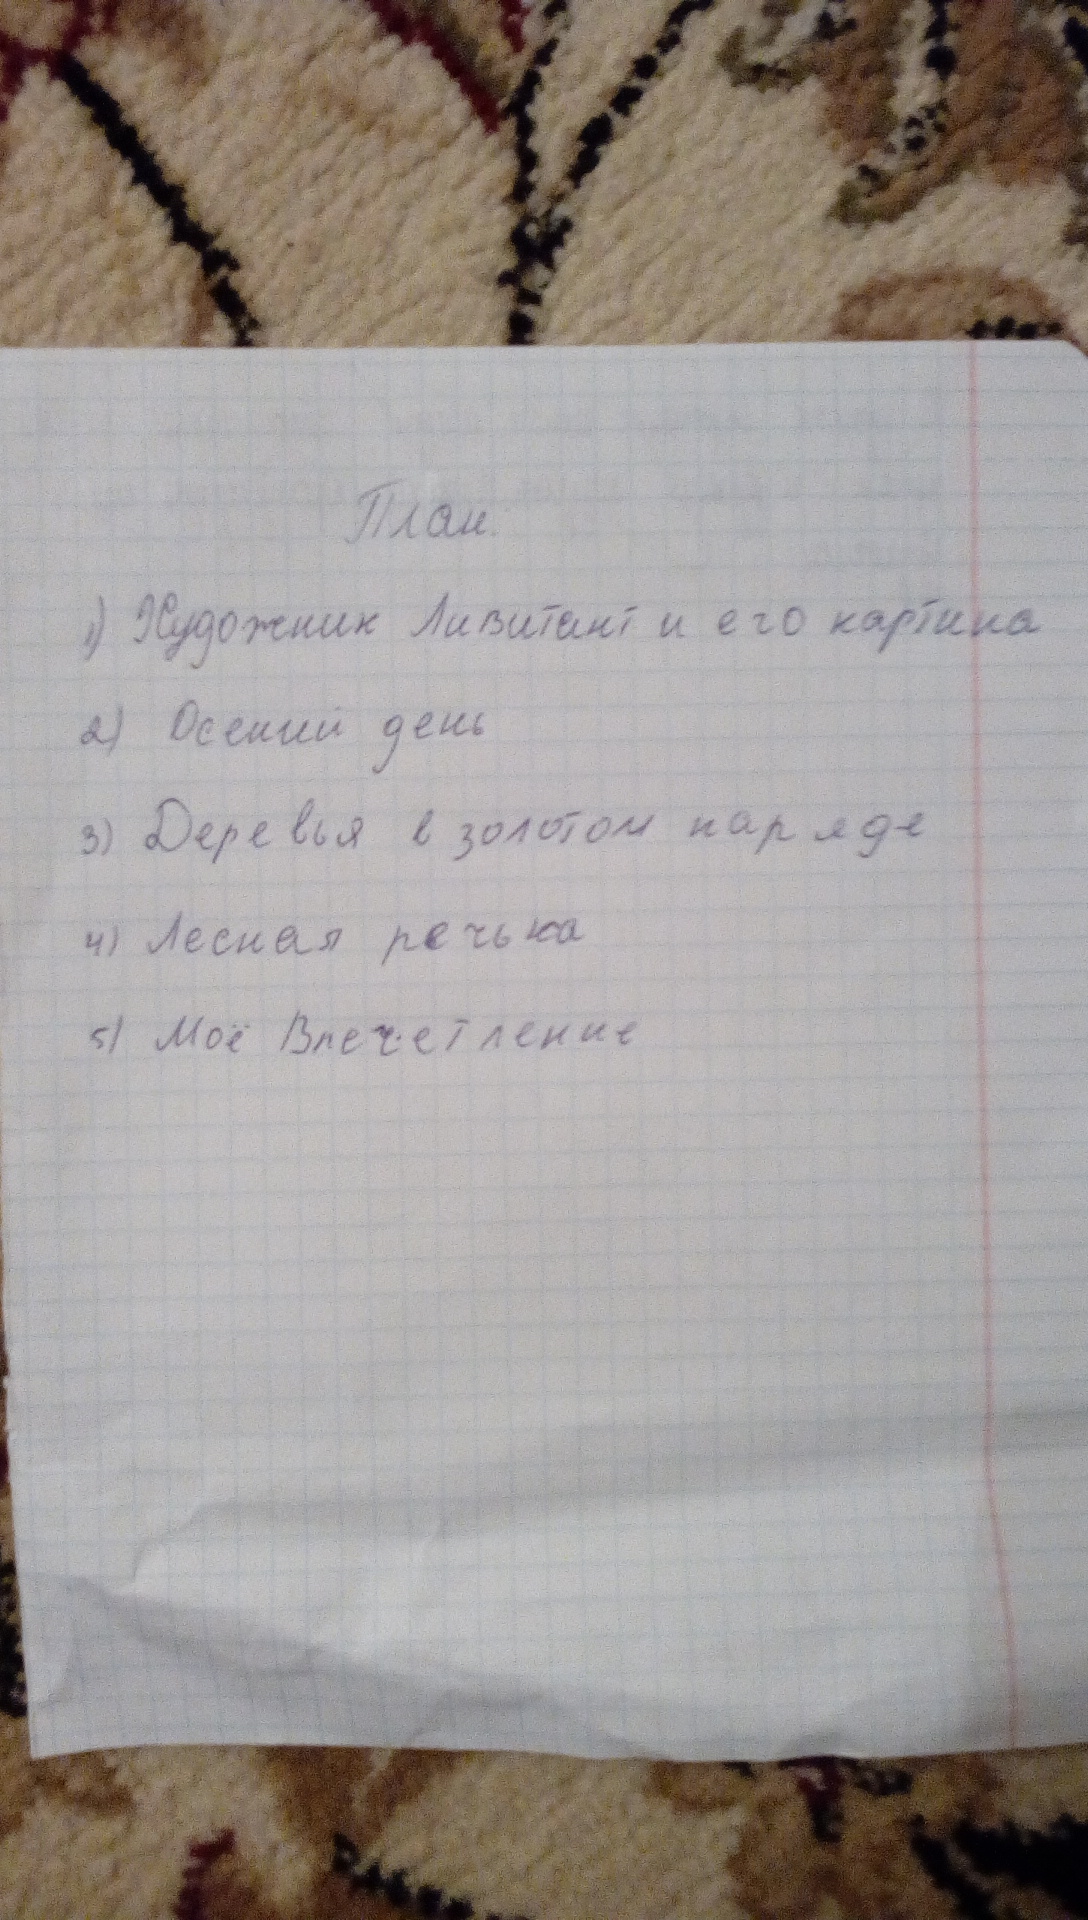 План.
1) Художник Ливитант и его картина
2) Осений день
3) Деревья в золотом наряде
4) Лесная речька
5) Моё Впечетление